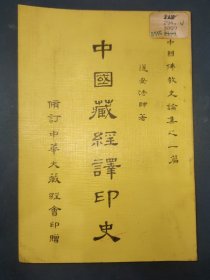 中國佛教史論集之一篇
道安法師著
中國藏經譯印史
脩訂中華大藏經會印贈